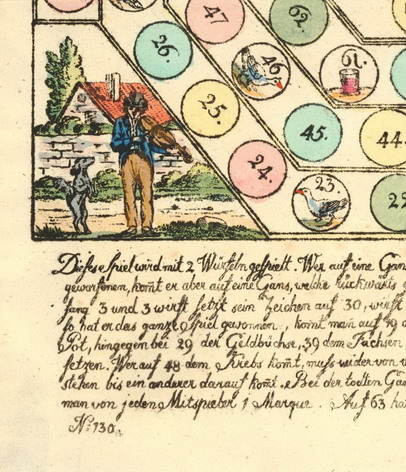 47
62.
26.
46
61.
25.
45.
44.
24.
23.
Dieses Spiel wird mit 2 Würfeln gespielt. Wer auf eine Gan
geworfenen, kom̄t er aber auf eine Gans, welche rückwärts
fang 3 und 3 wirft setzt sein Zeichen auf 30, wirft
so hat er das ganze Spiel gewonnen, kom̄t man auf 19
Pot, hingegen bei 29 der Geldbüchse, 39 dem Füchsen
setzen. Wer auf 48 dem Krebs kom̄t, muss wider von v
stehen bis ein anderer darauf kom̄t. Bei der todten Gan
man von jedem Mitspieler 1 Marque. Auf 63 ha
No: 130.